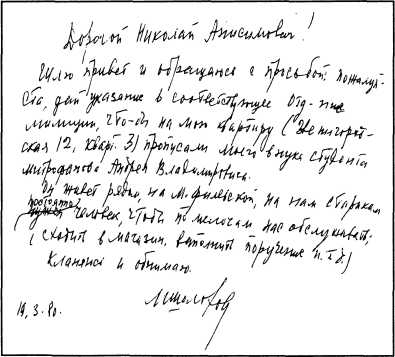 Дорогой Николай Анисимович!
Шлю привет и обращаюсь с просьбой: пожалуй-
ста, дай указание в соответствующее отд-ние
милиции, что-бы на мою квартиру (Звенигород-
ская 12, кварт. 3) прописали моего внука студента
Митрофанова Андрея Владимировича.
Он живет рядом, на М. Филевской, но нам старикам
подгоден человек, чтобы по мелочам нас обслуживать
(сходить в магазин, выполнить поручение и.т.д.)
Кланяюсь и обнимаю.
МШолохов
14.3.80.